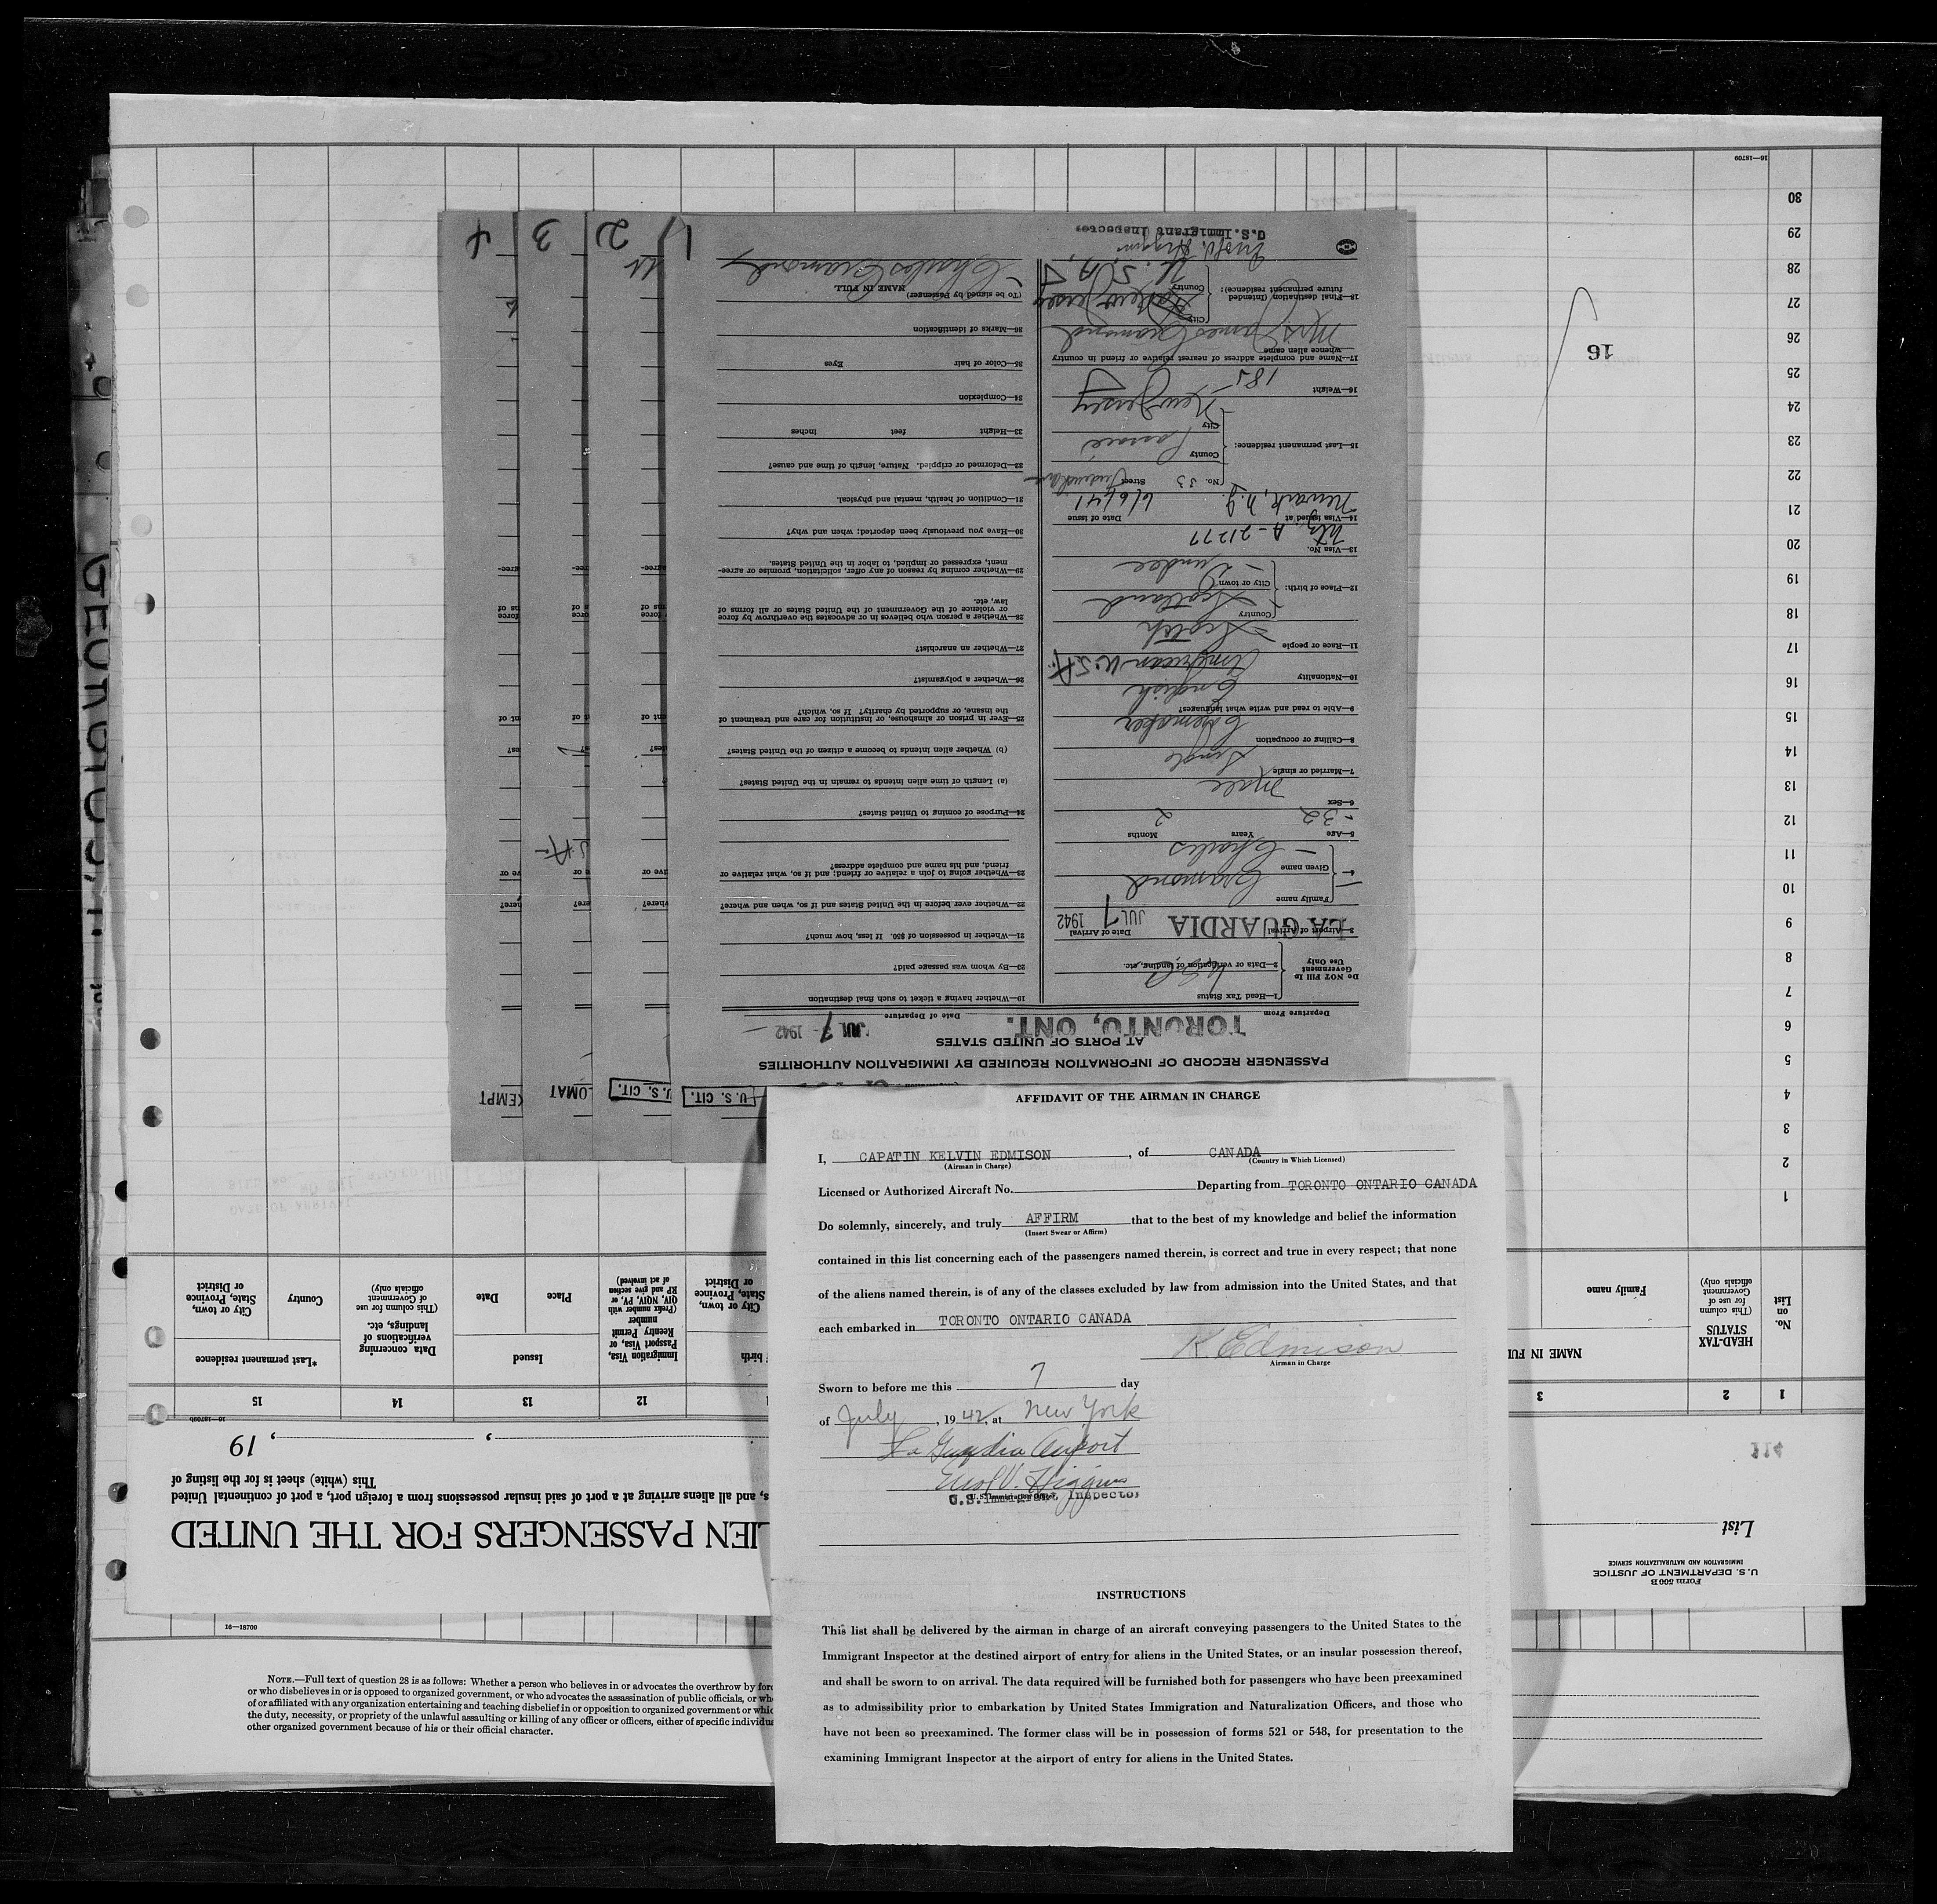 AFFIDAVIT OF THE AIRMAN IN CHARGE
I, CAPATIN KELVIN EDMISON, of CANADA
(Airman in Charge) (Country in Which Licensed)
Licensed or Authorized Aircraft No. Departing from TORONTO ONTARIO CANADA
Do solemnly, sincerely, and truly AFFIRM that to the best of my knowledge and belief the information
(Insert Swear or Affirm)
contained in this list concerning each of the passengers named therein, is correct and true in every respect; that none
of the aliens named therein, is of any of the classes excluded by law from admission into the United States, and that
each embarked in TORONTO ONTARIO CANADA
K. Edmison
Airman in Charge
Sworn to before me this 7 day
of July, 1942, at New York
La Guardia Airport
U.S. Immigrant Inspector
INSTRUCTIONS
This list shall be delivered by the airman in charge of an aircraft conveying passengers to the United States to the
Immigrant Inspector at the destined airport of entry for aliens in the United States, or an insular possession thereof,
and shall be sworn to on arrival. The data required will be furnished both for passengers who have been preexamined
as to admissibility prior to embarkation by United States Immigration and Naturalization Officers, and those who
have not been so preexamined. The former class will be in possession of forms 521 or 548, for presentation to the
examining Immigrant Inspector at the airport of entry for aliens in the United States.
16—18709
NOTE.—Full text of question 28 is as follows: Whether a person who believes in or advocates the overthrow by forc
or who disbelieves in or is opposed to organized government, or who advocates the assassination of public officials, or wh
of or affiliated with any organization entertaining and teaching disbelief in or opposition to organized government or whic
the duty, necessity, or propriety of the unlawful assaulting or killing of any officer or officers, either of specific individua
other organized government because of his or their official character.
U. S. CIT.
U. S. CIT.
LOMAT
KEMPT
PASSENGER RECORD OF INFORMATION REQUIRED BY IMMIGRATION AUTHORITIES
AT PORTS OF UNITED STATES
Departure From TORONTO, ONT. Date of Departure JUL 7 - 1942
DO NOT FILL IN
Government
Use Only
1—Head Tax Status
2—Data or verification of landing, etc.
3—Airport of Arrival LA GUARDIA Date of Arrival JUL 7 1942
4— Family name Cramond
Given name Charles
5—Age 32 Years 2 Months
6—Sex Male
7—Married or single Single
8—Calling or occupation
9—Able to read and write what languages? English
10—Nationality American U.S.A.
11—Race or people Scotch
12—Place of birth: Country Scotland
City or town Dundee
13—Visa No. A-21277
14—Visa issued at Newark, N.J. Date of issue 6/6/41
15—Last permanent residence: No. 33 Street
County Passaic
City New Jersey
16—Weight 185
17—Name and complete address of nearest relative or friend in country
whence alien came
Mrs James Cramond
18—Final destination (Intended
future permanent residence): City New Jersey
Country U.S.A.
U.S. Immigrant Inspector
19—Whether having a ticket to such final destination
20—By whom was passage paid?
21—Whether in possession of $50. If less, how much?
22—Whether ever before in the United States and if so, when and where?
23—Whether going to join a relative or friend; and if so, what relative or
friend, and his name and complete address?
24—Purpose of coming to United States?
(a) Length of time alien intends to remain in the United States?
(b) Whether alien intends to become a citizen of the United States?
25—Ever in prison or almshouse, or institution for care and treatment of
the insane, or supported by charity? If so, which?
26—Whether a polygamist?
27—Whether an anarchist?
28—Whether a person who believes in or advocates the overthrow by force
or violence of the Government of the United States or all forms of
law, etc.
29—Whether coming by reason of any offer, solicitation, promise or agree-
ment, expressed or implied, to labor in the United States.
30—Have you previously been deported; when and why?
31—Condition of health, mental and physical.
32—Deformed or crippled. Nature, length of time and cause?
33—Height feet inches
34—Complexion
35—Color of hair Eyes
36—Marks of identification
(To be signed by Passenger)
NAME IN FULL
Charles Cramond
1
2
3
4
Form 500 B
U. S. DEPARTMENT OF JUSTICE
IMMIGRATION AND NATURALIZATION SERVICE
List
LIEN PASSENGERS FOR THE UNITED
s, and all aliens arriving at a port of said insular possessions from a foreign port, a port of continental United
This (white) sheet is for the listing of
, , 19
16—18709b
1 2 3 12 13 14 15
No.
on
List
HEAD-TAX
STATUS
(This column
for use of
Government
officials only)
NAME IN FUL
Family name
f birth
City or town,
State, Province
or District
Immigration Visa,
Passport Visa, or
Reentry Permit
number
(Prefix number with
QIV, NQIV, PV, or
RP and give section
of act involved)
Issued
Place
Date
Data concerning
verifications of
landings, etc.
(This column for use
of Government
officials only)
*Last permanent residence
Country
City or town,
State, Province
or District
1
2
3
4
5
6
7
8
9
10
11
12
13
14
15
16
17
18
19
20
21
22
23
24
25
26
27
28
29
30
16
16—18709